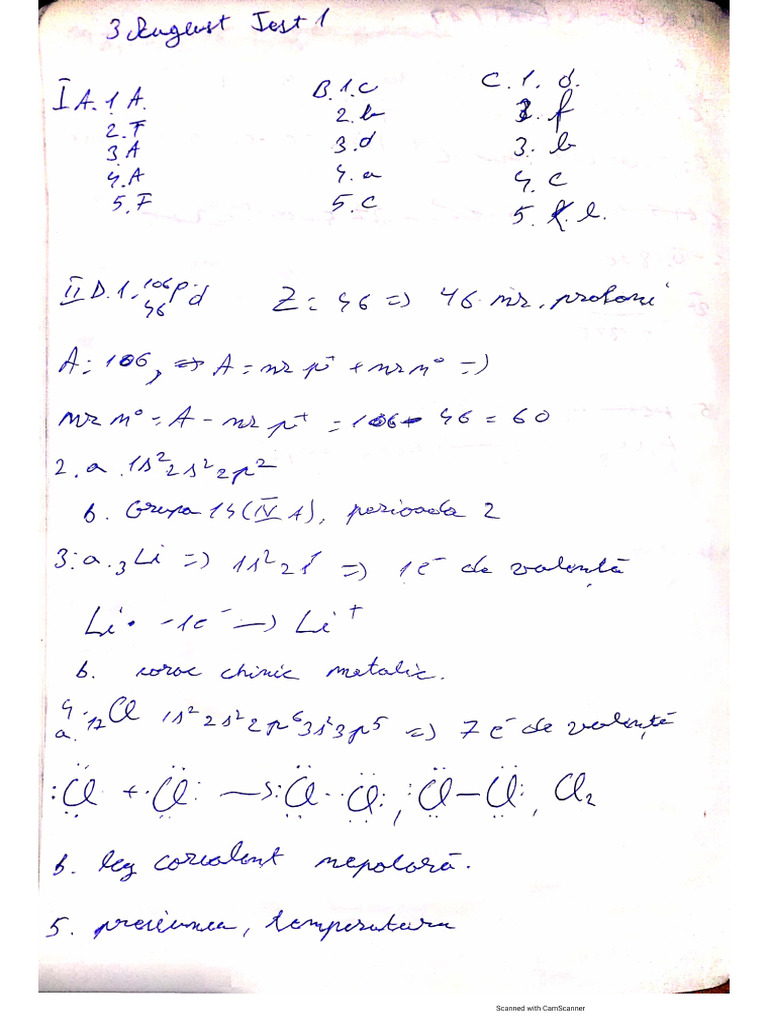 3 August Test 1
I A. 1 A. B. 1. c C. 1. d.
2. F 2. b 2. f
3 A 3. d 3. b
4. A 4. a 4. c
5. F 5. c 5. e.
II D. 1. ¹⁰⁶₄₆Pd Z = 46 => 46 nr. protoni
A = 106, => A = nr p⁺ + nr n° =>
nr n° = A - nr p⁺ = 106 - 46 = 60
2. a. 1s² 2s² 2p²
b. Grupa 14 (IV A), perioada 2
3. a. ₃Li => 1s² 2s¹ => 1e⁻ de valență
Li· -1e⁻ —> Li⁺
b. caracter chimic metalic.
4. a. ₁₇Cl 1s² 2s² 2p⁶ 3s² 3p⁵ => 7 e⁻ de valență
:Cl· + ·Cl: —> :Cl··Cl:, :Cl—Cl:, Cl₂
b. leg covalent nepolară.
5. presiunea, temperatura
Scanned with CamScanner